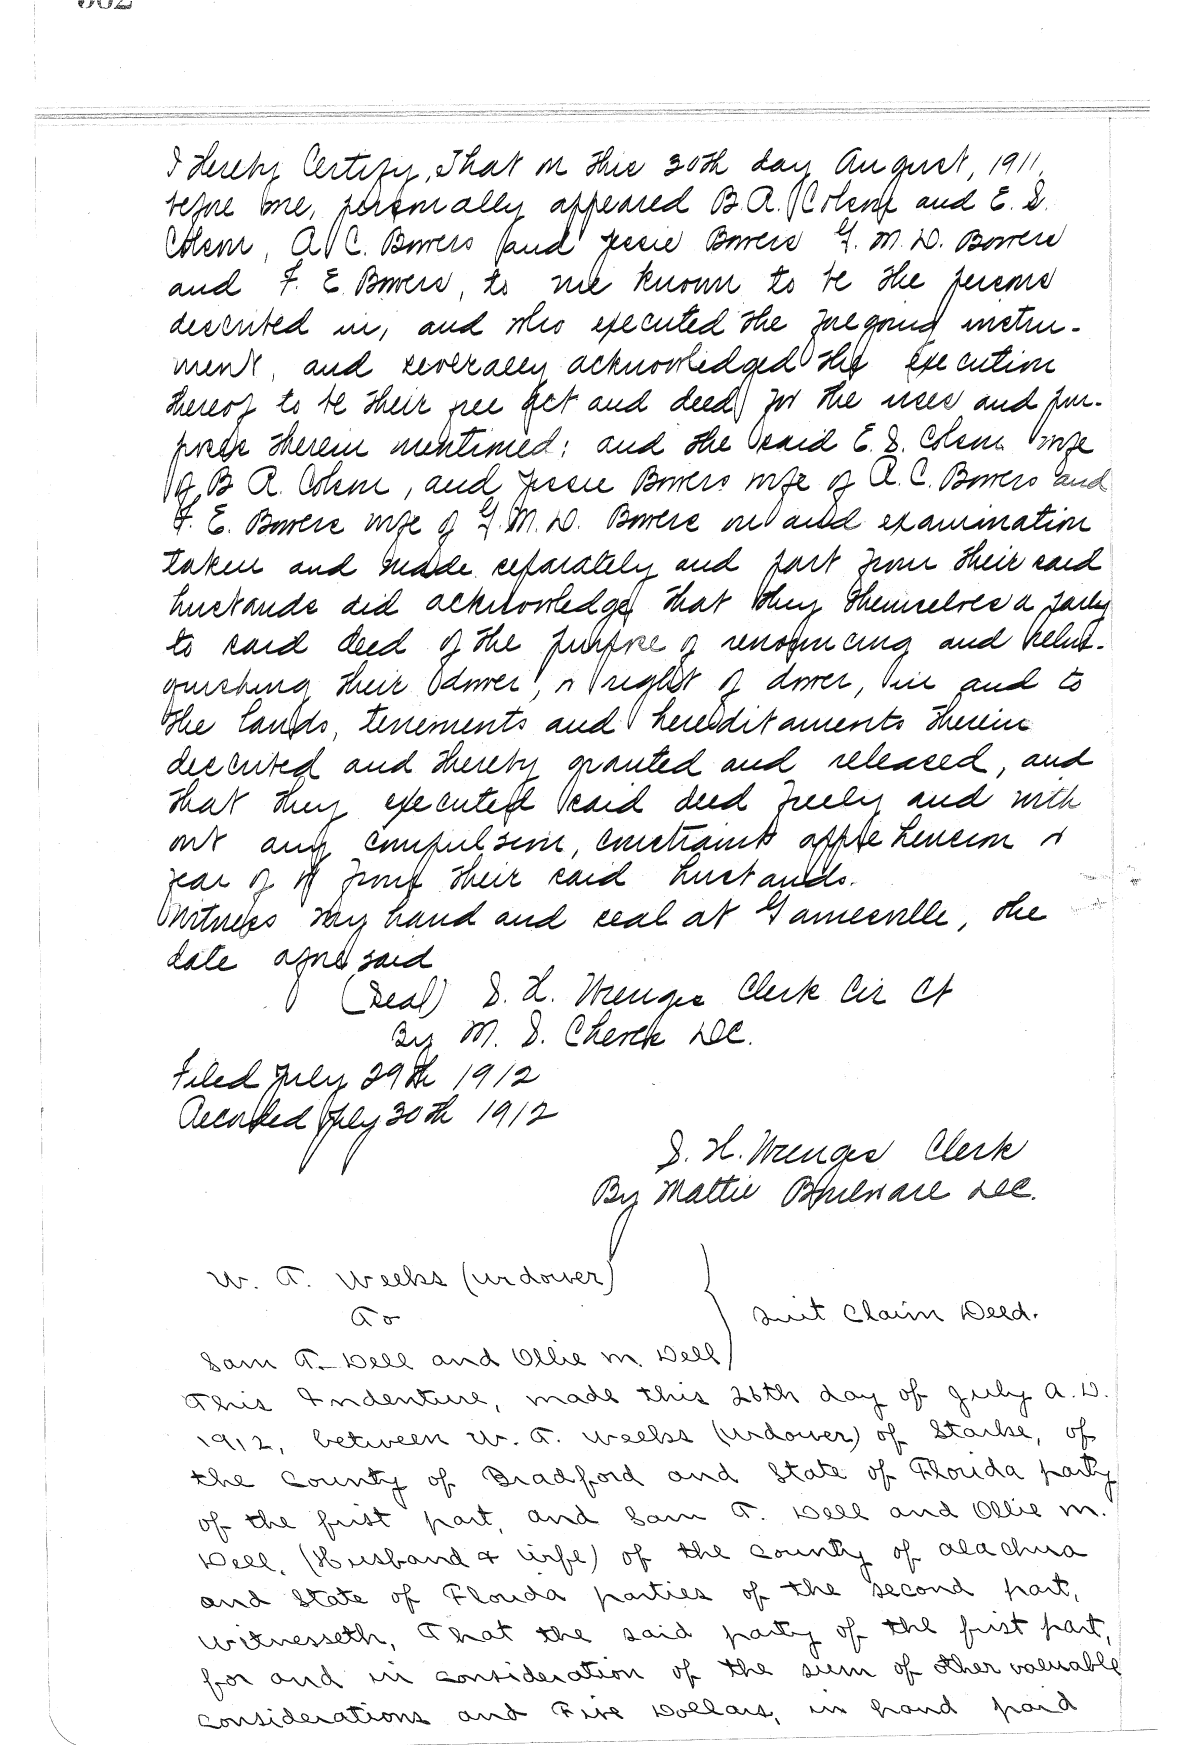 I Hereby Certify, That on this 30th day August, 1911,
before me, personally appeared B. A. Colson and E. S.
Colson, A. C. Bowers and Jessie Bowers G. M. D. Bowers
and F. E. Bowers, to me known to be the persons
described in, and who executed the foregoing instru-
ment, and severally acknowledged the execution
thereof to be their free act and deed for the uses and pur-
poses therein mentioned; and the said E. S. Colson wife
of B A. Colson, and Jessie Bowers wife of A. C. Bowers and
F. E. Bowers wife of G. M. D. Bowers on and examination
taken and made separately and part from their said
husbands did acknowledge that they themselves a party
to said deed of the purpose of renouncing and relin-
quishing their dower, or right of dower, in and to
the lands, tenements and hereditaments therein
described and thereby granted and released, and
that they executed said deed freely and with
out any compulsion, constraint apprehension or
fear of or from their said husbands.
Witness my hand and seal at Gainesville, the
date aforesaid
(Seal) S. H. Wienges Clerk Cir Ct
By M. S. Cheves D.C.
Filed July 29th 1912
Recorded July 30th 1912
S. H. Wienges Clerk
By Mattie Boulware D.C.
W. T. Weeks (widower)
To
Quit Claim Deed.
Sam T. Dell and Ollie M. Dell
This Indenture, made this 26th day of July A. D.
1912, between W. T. Weeks (widower) of Starke, of
the County of Bradford and State of Florida party
of the first part, and Sam T. Dell and Ollie M.
Dell, (Husband & wife) of the County of Alachua
and State of Florida parties of the second part,
Witnesseth, That the said party of the first part,
for and in consideration of the sum of other valuable
considerations and Five Dollars, in hand paid